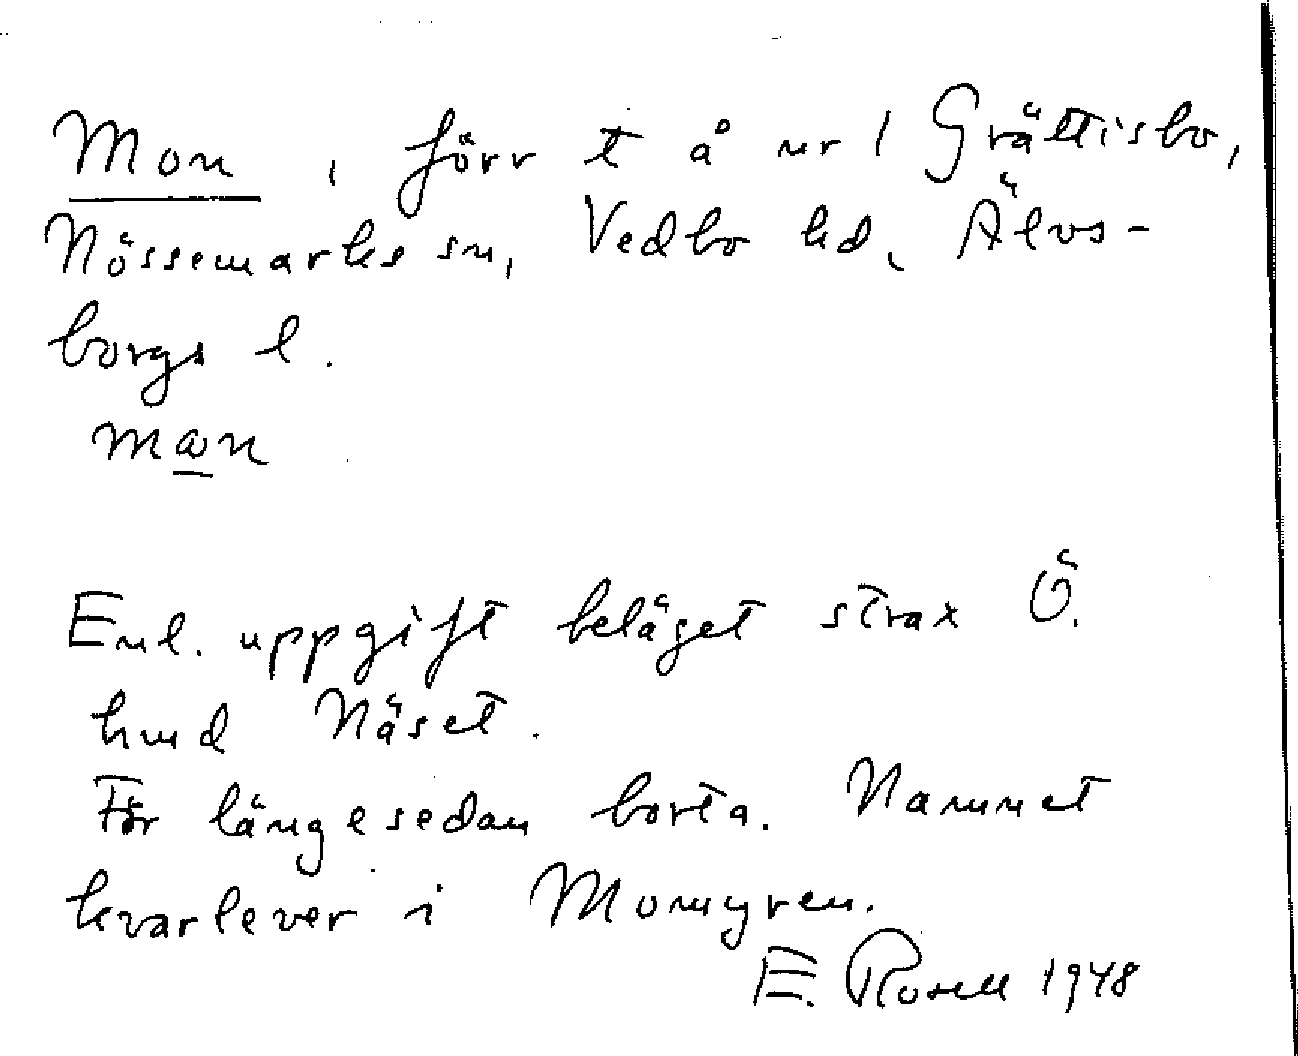 Mon, förr t å nr 1 Grättisbo,
Nössemarks sn, Vedbo hd, Älvs-
borgs l.
Enl. uppgift beläget strax Ö.
hmd Näset.
För längesedan borta. Namnet
kvarlever i Momyren.
E. Rosell 1948